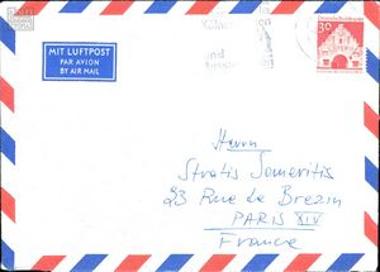 MIT LUFTPOST
PAR AVION
BY AIR MAIL
und
30
Herrn
Stratis Someritis
23 Rue de Brezin
PARIS XIV
France